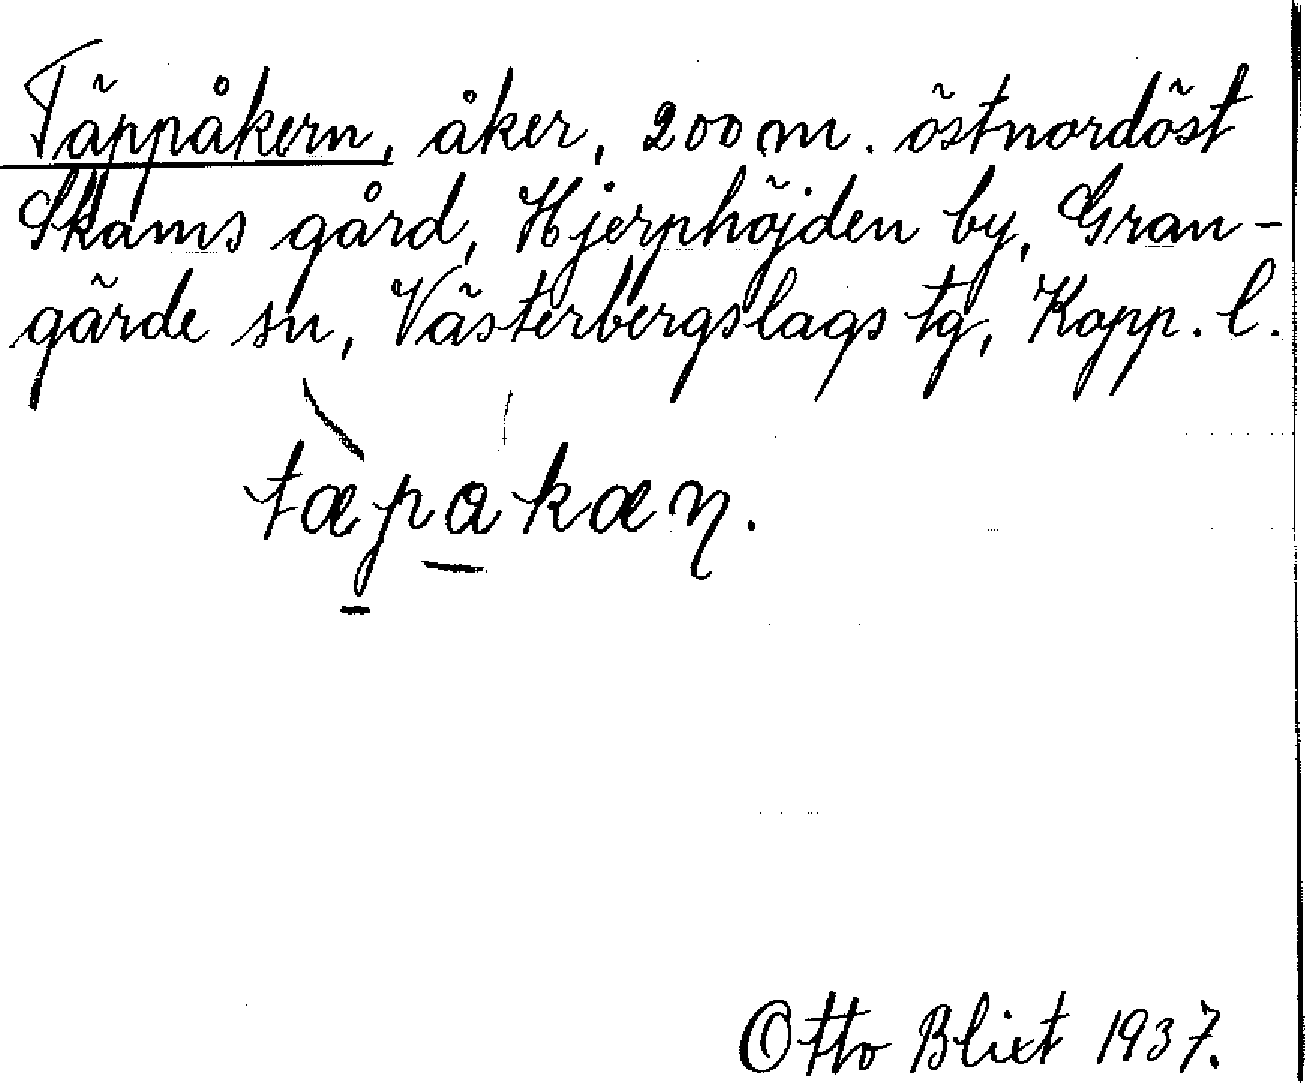 Täppåkern, åker, 200 m. östnordöst
Skams gård, Hjerphöjden by, Gran-
gärde sn, Västerbergslags tg, Kopp. l.
tæpakæη.
Otto Blixt 1937.